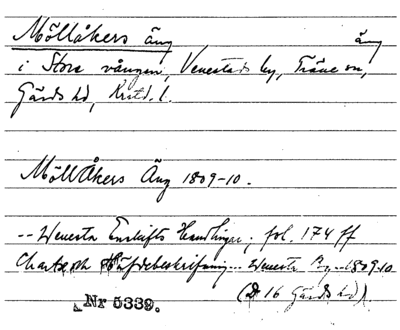 Möllåkers äng äng
i Stora vången, Venestads by, Träne sn,
Gärds hd, Krstd. l.
Möllåkers Äng 1809-10.
-- Wenesta Enskifts Handlingar; fol. 174 ff
Charta och Häfdebeskrifning... Wenesta By...1809-10
(D 16 Gärds hd)
Nr 5339.